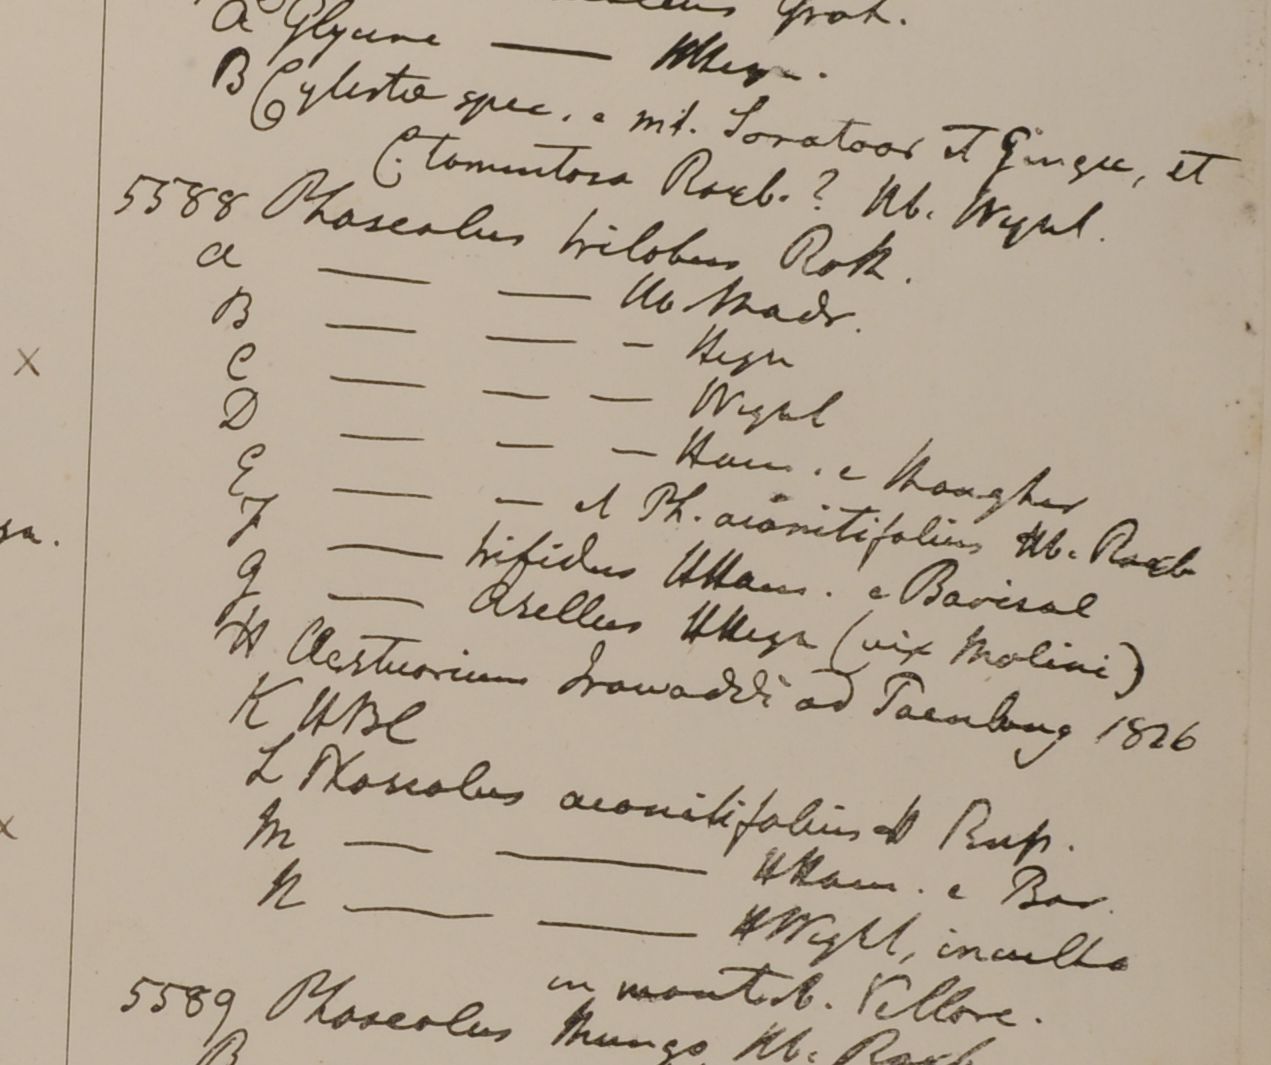 Grah.
a Glycine — HHeyn.
B Cylista spec. e mt. Sonatoor et Gingee, et
C. tomentosa Roxb.? Hb. Wight.
5588 Phaseolus trilobus Roth.
a — — Hb Madr.
B — — — Heyn
C — — — Wight
D — — — Ham. e Monghir
E — — et Ph. aconitifolius Hb. Roxb
F — trifidus HHam. e Barisal
g — Asellus HHeyn (vix Molini)
H Aestuarium Irawaddi ad Taenlung 1826
K HBC
L Phaseolus aconitifolius H Bup.
M — — HHam. e Bar.
N — — HWight, inculta
in montib. Vellore.
5589 Phaseolus Mungo Hb. Roxb
B
x
x